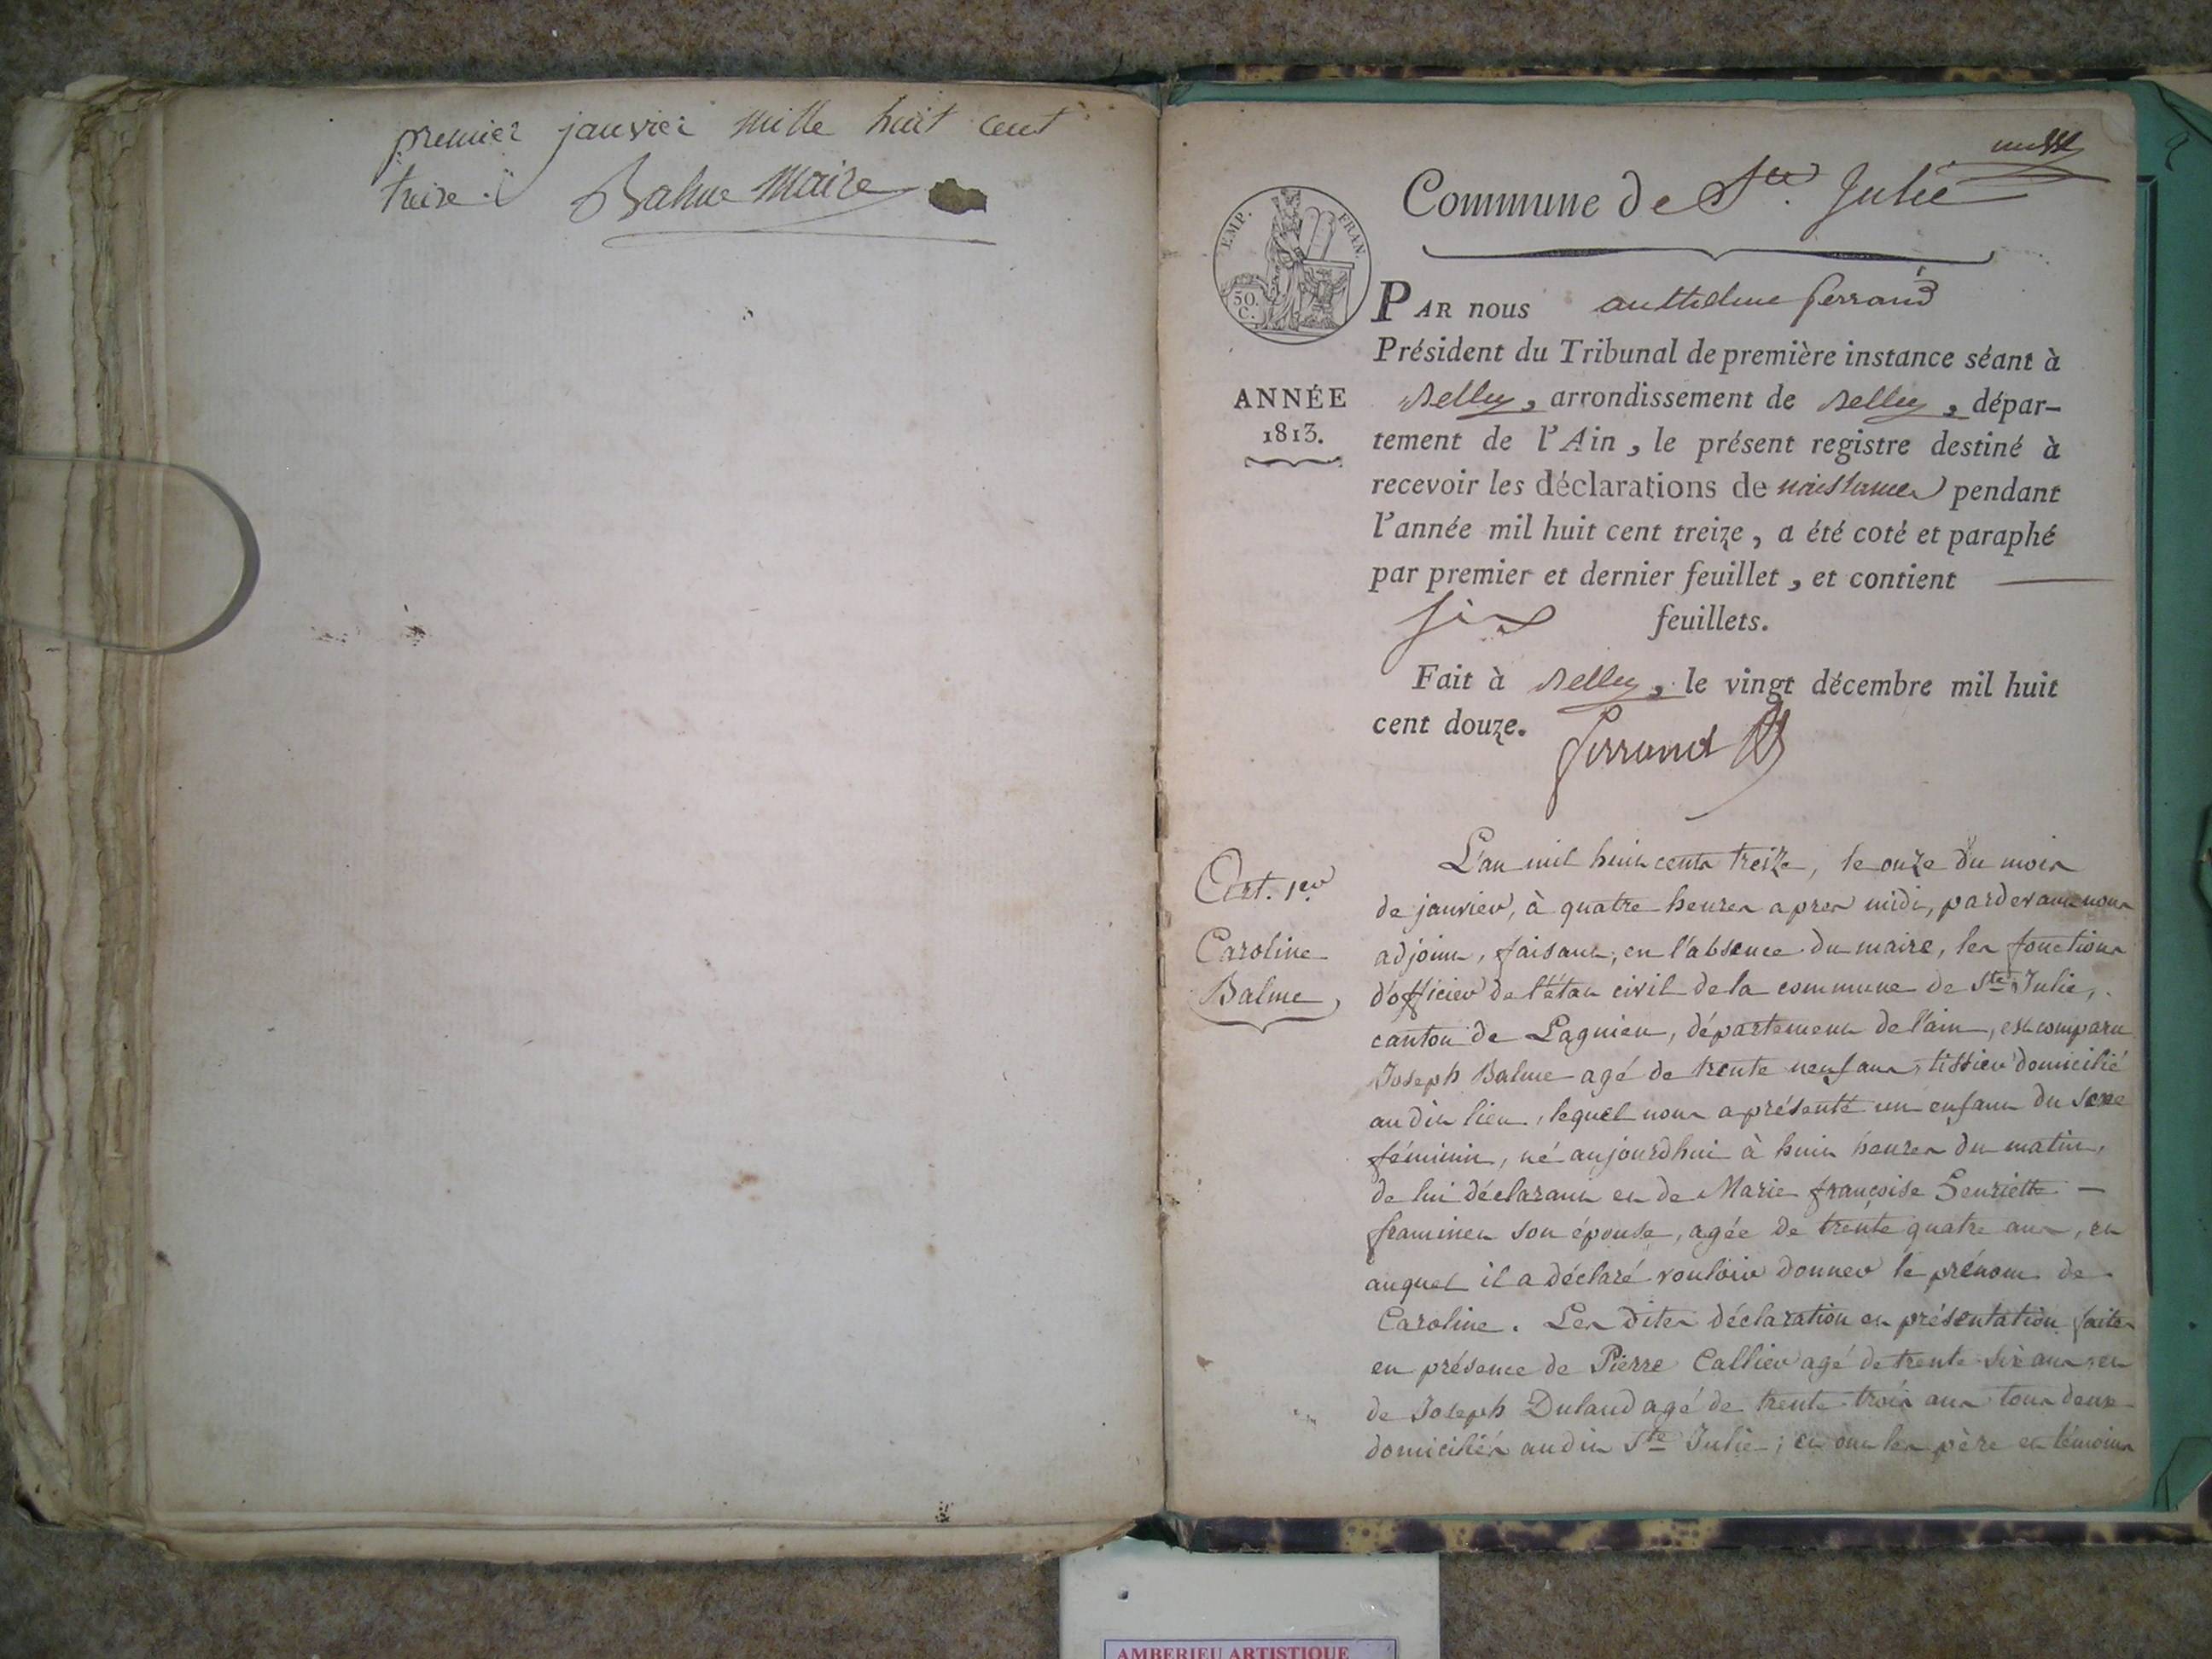 premier janvier mille huit cent
treize. Balme Maire
Commune de Ste. Julie
EMP. FRAN.
50.
C.
PAR nous anthelme ferrand
Président du Tribunal de première instance séant à
ANNÉE
1813.
Belley, arrondissement de Belley, dépar-
tement de l'Ain, le présent registre destiné à
recevoir les déclarations de naissances pendant
l'année mil huit cent treize, a été coté et paraphé
par premier et dernier feuillet, et contient
six feuillets.
Fait à Belley, le vingt décembre mil huit
cent douze.
ferrand
Art. 1er
Caroline
Balme,
L'an mil huit cent treize, le onze du mois
de janvier, à quatre heures apres midi, pardevant nous
adjoint, faisant, en l'absence du maire, les fonctions
d'officier de l'état civil de la commune de Ste Julie,
canton de Lagnieu, département de l'ain, est comparu
Joseph Balme agé de trente neuf ans, tissier domicilié
audit lieu, lequel nous a présenté un enfant du sexe
féminin, né aujourdhui à huit heures du matin,
de lui déclarant et de Marie françoise Henriette —
framinet son épouse, agée de trente quatre ans, et
auquel il a déclaré vouloir donner le prénom de
Caroline. Les dites déclaration et présentation faites
en présence de Pierre Callier agé de trente six ans et
de Joseph Dulaud agé de trente trois ans tous deux
domiciliés audit Ste Julie; et ont les père et témoins
AMBERIEU ARTISTIQUE